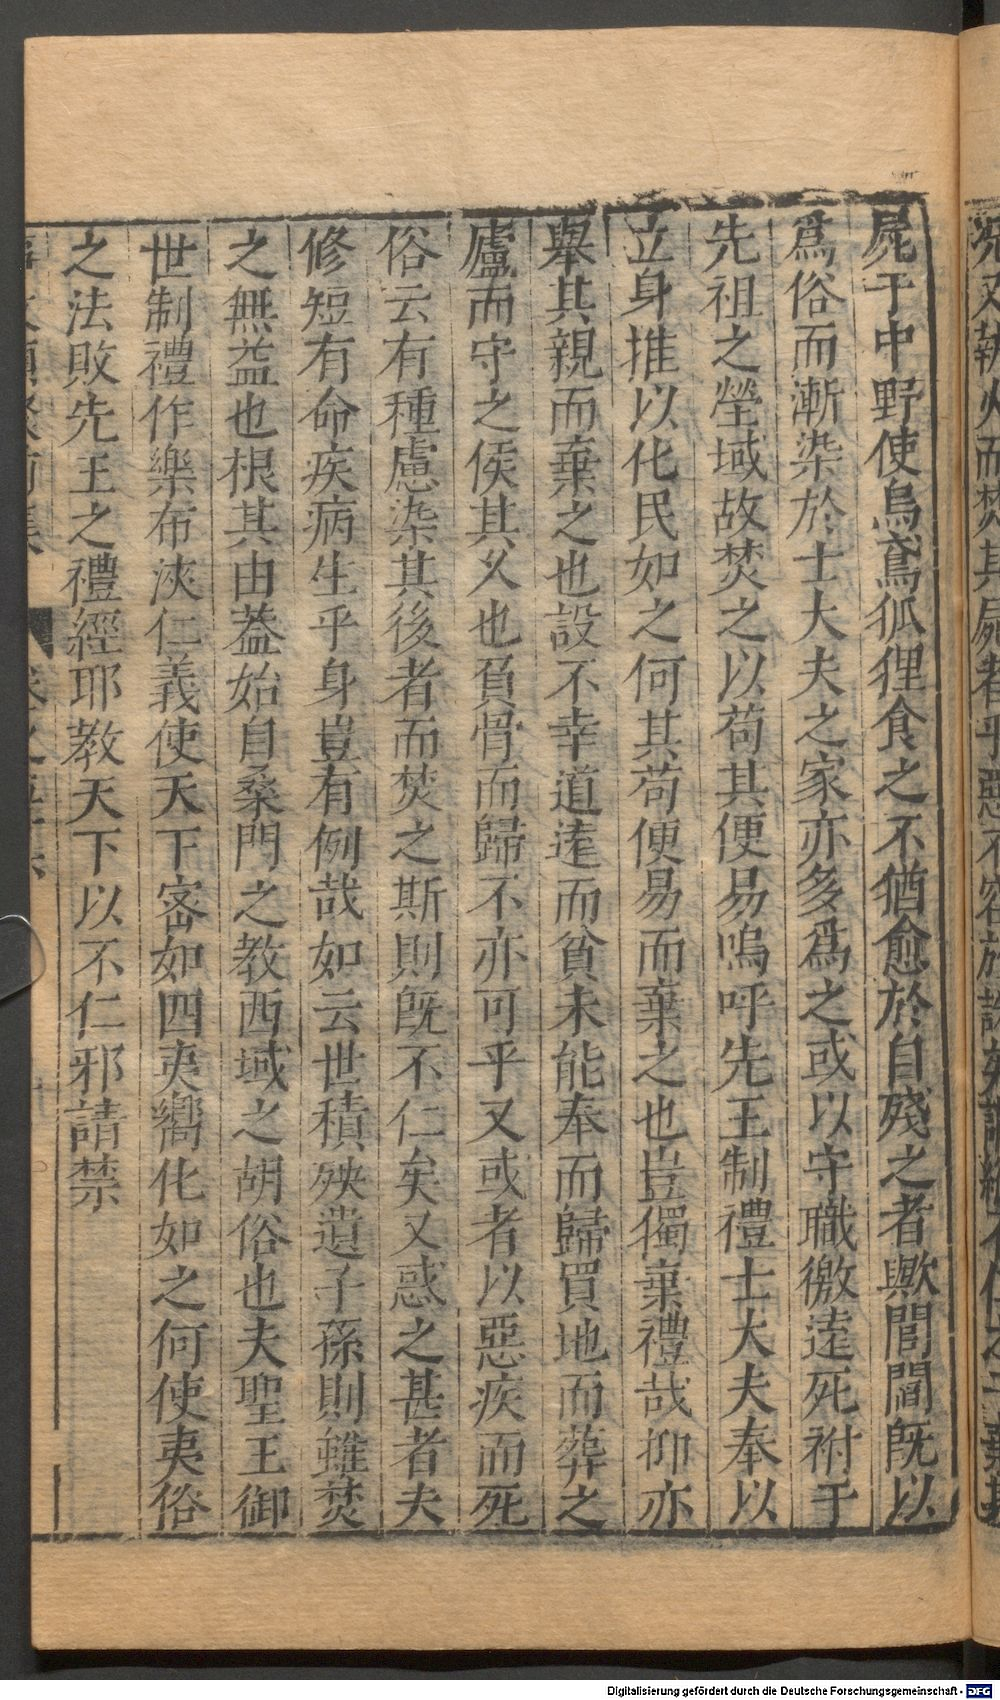 屍于中野使烏鳶狐狸食之不猶愈於自殘之者歟閭閻旣以
爲俗而漸染於士大夫之家亦多爲之或以守職徼遠死祔于
先祖之塋域故焚之以苟其便易嗚呼先王制禮士大夫奉以
立身推以化民如之何其苟便易而棄之也豈獨棄禮哉抑亦
舉其親而棄之也設不幸道遠而貧未能奉而歸買地而葬之
廬而守之俟其久也負骨而歸不亦可乎又或者以惡疾而死
俗云有種慮染其後者而焚之斯則旣不仁矣又惑之甚者夫
修短有命疾病生乎身豈有例哉如云世積殃遺子孫則雖焚
之無益也根其由葢始自桑門之教西域之胡俗也夫聖王御
世制禮作樂布浹仁義使天下密如四夷嚮化如之何使夷俗
之法敗先王之禮經耶教天下以不仁邪請禁
Digitalisierung gefördert durch die Deutsche Forschungsgemeinschaft - DFG